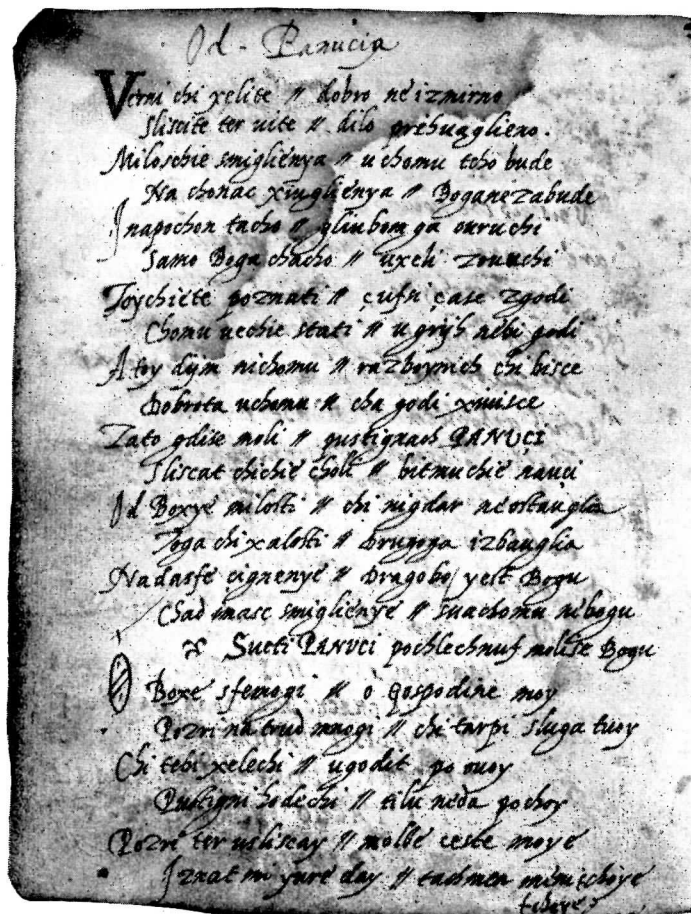 Od - Panucia
Verni chi xelite // dobro neizmirno
Sliscite ter uite // dilo prehuaglieno.
Miloschie smiglienya // u chomu tcho bude
Na chonac xiuglienya // Boga nezabude
I napochon tacho // gliubom ga
Samo Boga chacho // uxeli
Toy chiete poznati // çufsi çase zgodi
Chomu uechie stati // u grijh nebi godi
A toy dijm nichomu // razboynich chi bisce
Dobrota uchomu // cha godi xiuisce
Zato gdise moli // pustignach PANUCI
Sliscat chichie choli // bitmuchie nauci
Od Boxye milosti // chi nigdar neostauglia
Toga chi xalosti // drugoga izbauglia
Nadasfe cignenye // Drago bo yest Bogu
Chad imase smiglienye // suachomu nebogu
Sueti PANUCI pochlechnuf molise Bogu
O Boxe sfemogi // o gospodine moy
Pozri na trud mnogi // chi tarpi sluga tuoy
Chi tebi xelechi // ugodit po
Pustigni hodechi // tilu neda pochoy
Pozri ter usliscay // molbe ceste moye
I znat mi yure day // tachmen